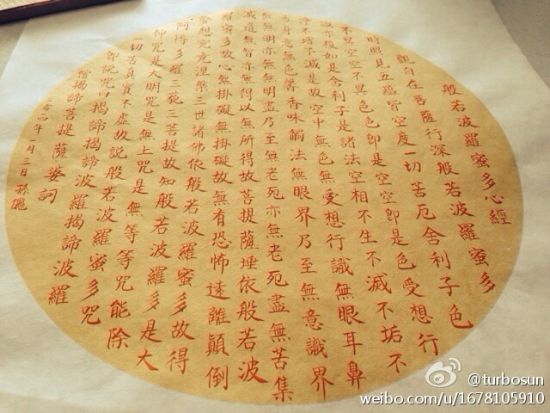 般若波羅蜜多心經
觀自在菩薩行深般若波羅蜜多
時照見五蘊皆空度一切苦厄舍利子色
不異空空不異色色即是空空即是色受想行
識亦復如是舍利子是諸法空相不生不滅不垢不
淨不增不減是故空中無色無受想行識無眼耳鼻
舌身意無色聲香味觸法無眼界乃至無意識界
無無明亦無無明盡乃至無老死亦無老死盡無苦集
滅道無智亦無得以無所得故菩提薩埵依般若波
羅蜜多故心無掛礙無掛礙故無有恐怖遠離顛倒
夢想究竟涅槃三世諸佛依般若波羅蜜多故得
阿耨多羅三藐三菩提故知般若波羅蜜多是大
神咒是大明咒是無上咒是無等等咒能除
一切苦真實不虛故說般若波羅蜜多咒
即說咒曰揭諦揭諦波羅揭諦波羅
僧揭諦菩提薩婆訶
年一月三日孫儷
@turbosun
weibo.com/u/1678105910